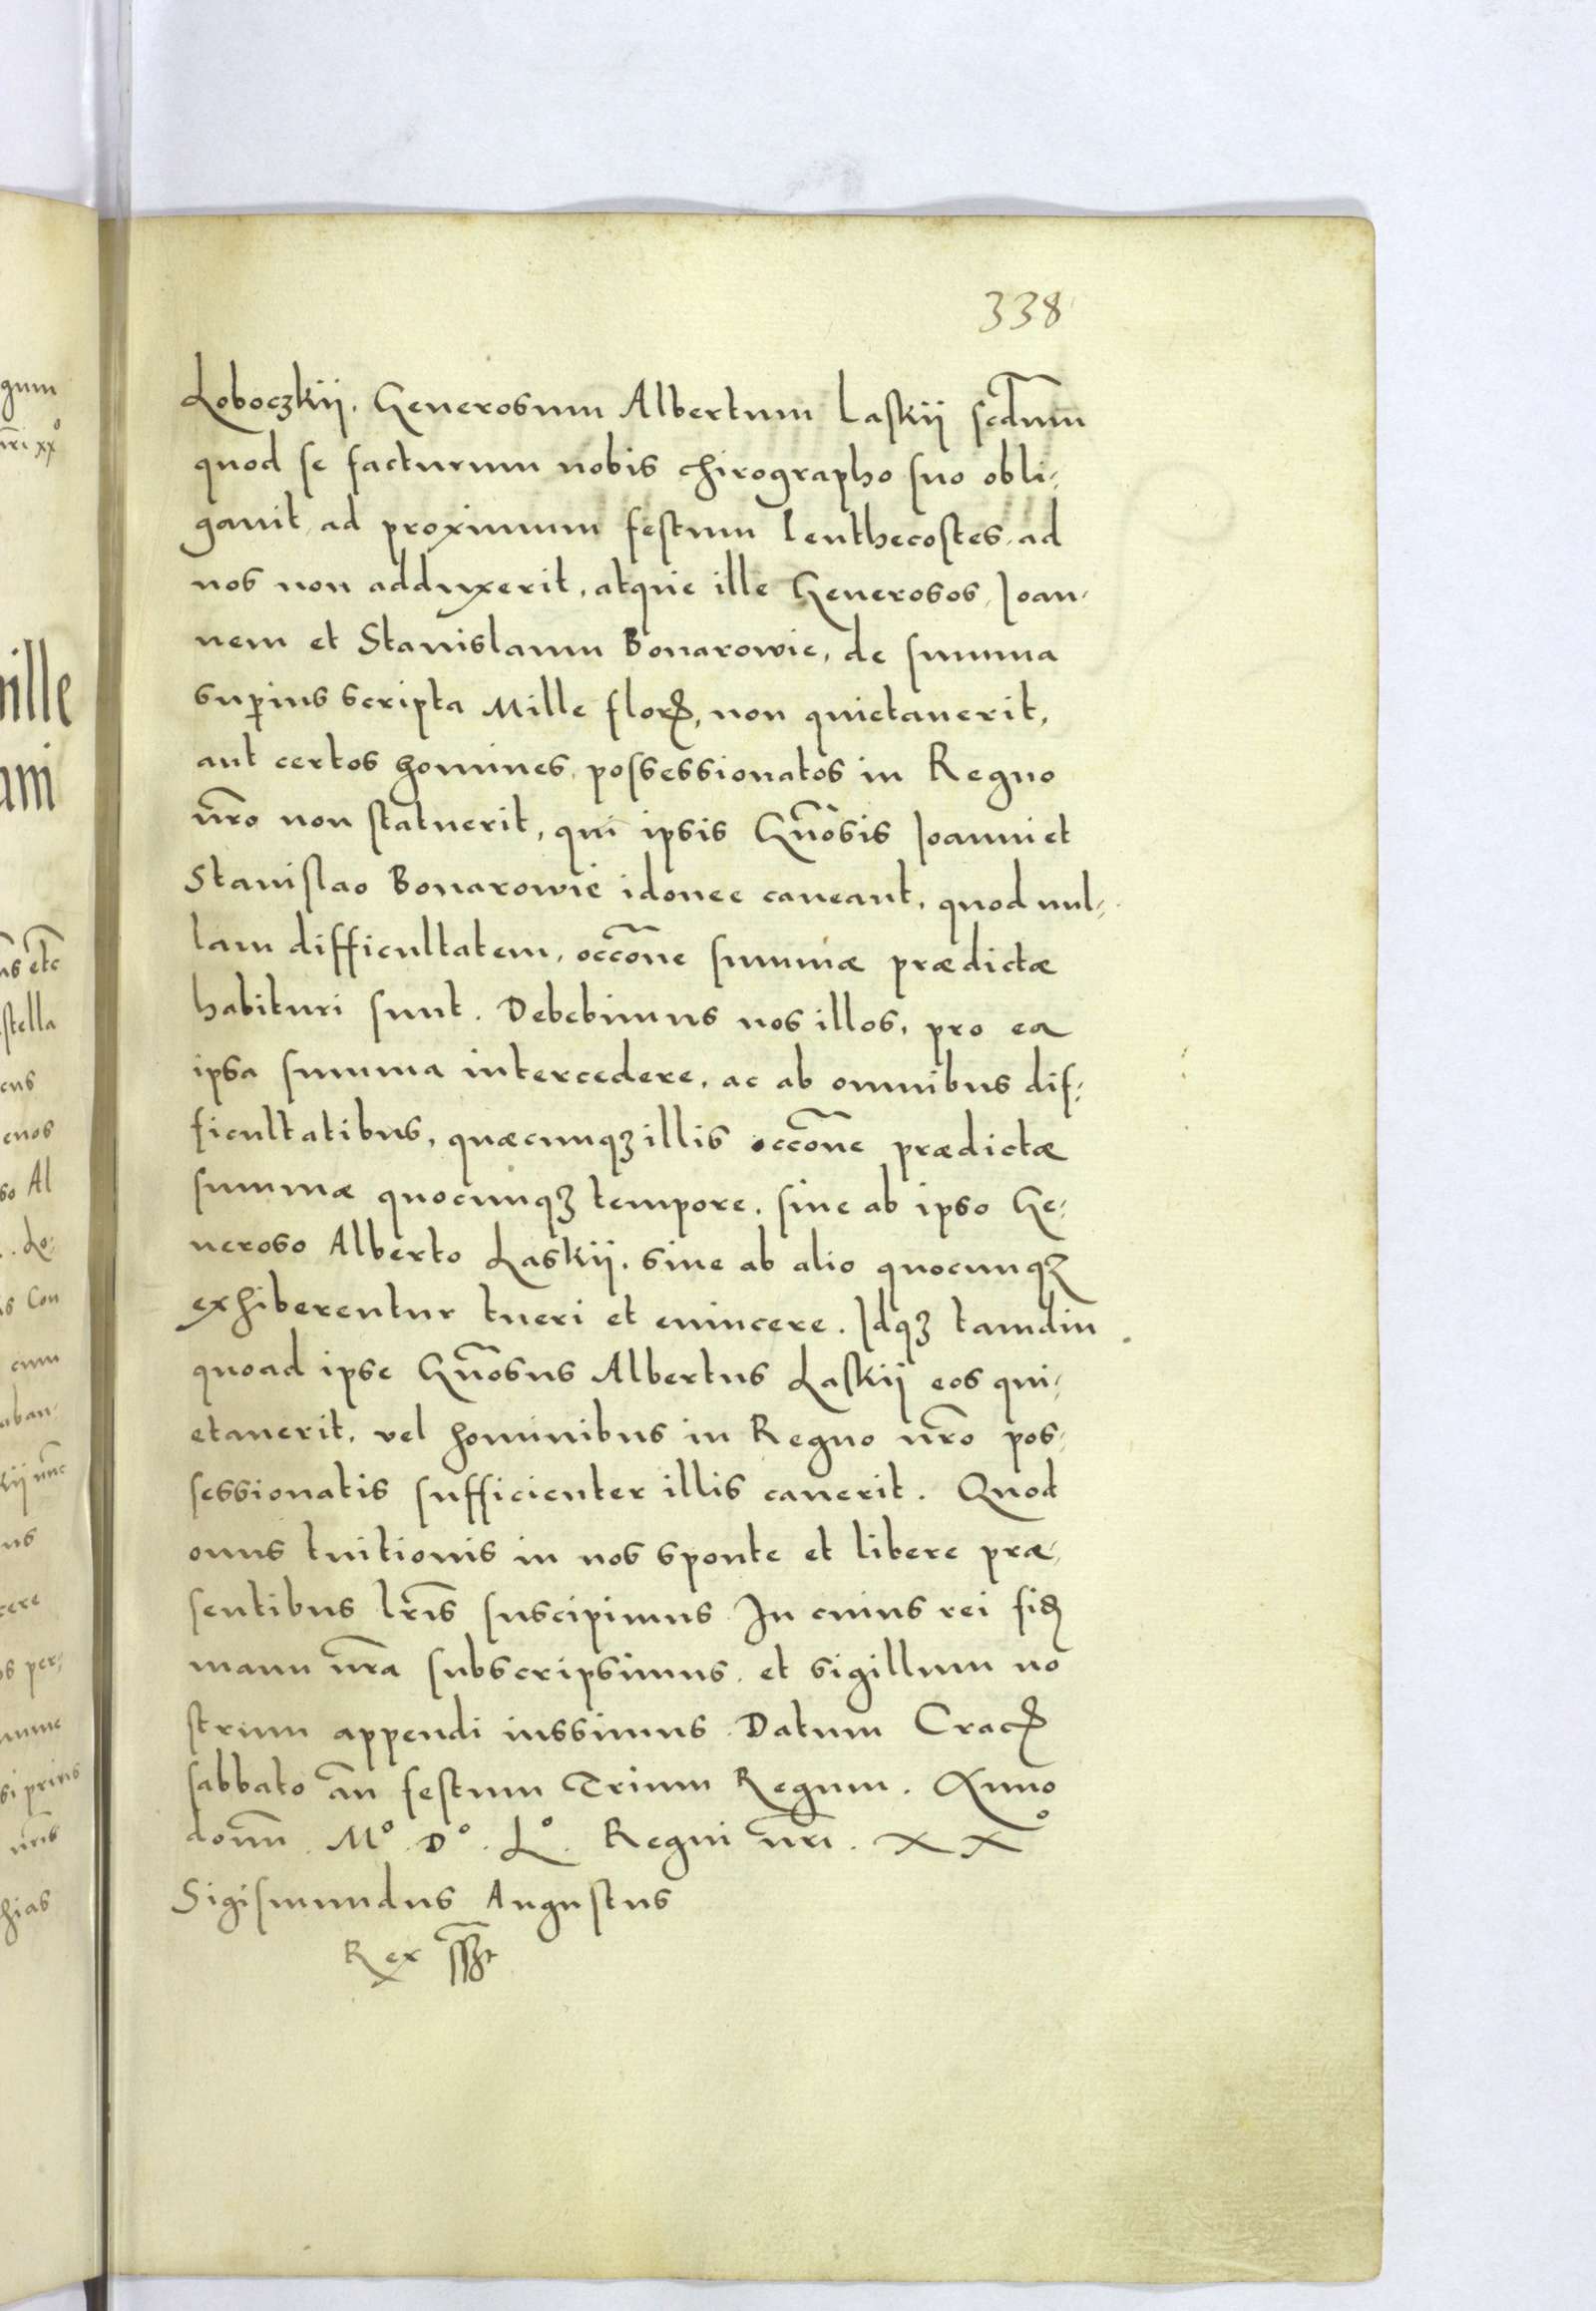 338
Loboczkij. Generosum Albertum Laskij scdum
quod se facturum nobis chirographo suo obli-
gauit, ad proximum festum Penthecostes, ad
nos non adduxerit, atque ille Generosos, Joan-
nem et Stanislaum Bonarowie, de summa
superius scripta Mille flor, non quietauerit,
aut certos homines possessionatos in Regno
nro non statuerit, qui ipsis Gnosis Joanni et
Stanislao Bonarowie idonee caueant, quod nul-
lam difficultatem, occone summæ prædictæ
habituri sunt. Debebimus nos illos, pro ea
ipsa summa intercedere, ac ab omnibus dif-
ficultatibus, quæcunqȝ illis occone prædictæ
summæ quocunqȝ tempore, siue ab ipso Ge-
neroso Alberto Laskij, siue ab alio quocunqȝ
exhiberentur tueri et euincere. Idqȝ tamdiu
quoad ipse Gnosus Albertus Laskij eos qui-
etauerit, vel hominibus in Regno nro pos-
sessionatis sufficienter illis cauerit. Quod
onus tuitionis in nos sponte et libere præ-
sentibus lris suscipimus. In cuius rei fid
manu nra subscripsimus, et sigillum no
strum appendi iussimus. Datum Crac
sabbato an festum Trium Regum. Anno
domi. Mº. Dº. Lº. Regni nri. XXº
Sigismundus Augustus
Rex sszt
gum
nri xxº
ille
ani
ns etc
stella
cus
enos
so Al
. Lo-
is Con
cum
aban-
kij nunc
us
cere
os per-
mme
si prius
nris
hias